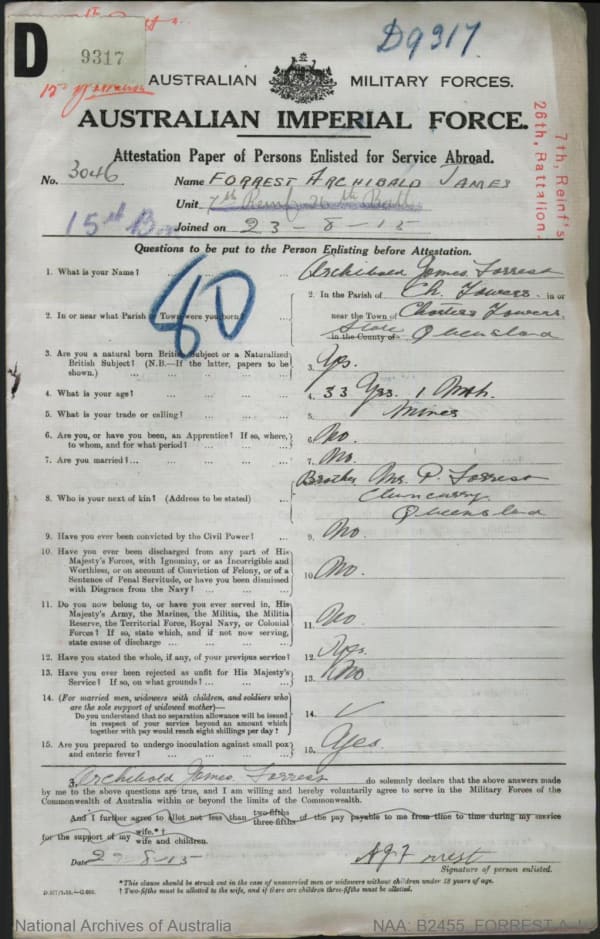 D
9317
D9317
AUSTRALIAN MILITARY FORCES.
AUSTRALIAN IMPERIAL FORCE.
Attestation Paper of Persons Enlisted for Service Abroad.
7th, Reinf's
26th, Battalion.
No. 3046 Name FORREST ARCHIBALD JAMES
Unit 7th Reinf 26th Battn
15th Bn Joined on 23-8-15
Questions to be put to the Person Enlisting before Attestation.
80
1. What is your Name? ... ... ... Archibald James Forrest
2. In or near what Parish or Town were you born? ... 2. In the Parish of Ch. Towers in or
near the Town of Charters Towers
in the County of State Queensland
3. Are you a natural born British Subject or a Naturalized
British Subject? (N.B.—If the latter, papers to be
shown.) ... ... ... ... ... 3. Yes.
4. What is your age? ... ... ... ... 4. 33 Yrs. 1 Mth.
5. What is your trade or calling? ... ... ... 5. Miner
6. Are you, or have you been, an Apprentice? If so, where,
to whom, and for what period? ... ... ... 6. No.
7. Are you married? ... ... ... ... ... 7. No.
8. Who is your next of kin? (Address to be stated) ... Brother P. Forrest
Cloncurry
Queensland
9. Have you ever been convicted by the Civil Power? ... 9. No.
10. Have you ever been discharged from any part of His
Majesty's Forces, with Ignominy, or as Incorrigible and
Worthless, or on account of Conviction of Felony, or of a
Sentence of Penal Servitude, or have you been dismissed
with Disgrace from the Navy? ... ... ... 10. No.
11. Do you now belong to, or have you ever served in, His
Majesty's Army, the Marines, the Militia, the Militia
Reserve, the Territorial Force, Royal Navy, or Colonial
Forces? If so, state which, and if not now serving,
state cause of discharge ... ... ... ... 11. No
12. Have you stated the whole, if any, of your previous service? 12. Yes.
13. Have you ever been rejected as unfit for His Majesty's
Service? If so, on what grounds? ... ... ... 13. No
14. (For married men, widowers with children, and soldiers who
are the sole support of widowed mother)—
Do you understand that no separation allowance will be issued
in respect of your service beyond an amount which
together with pay would reach eight shillings per day? 14. ✓
15. Are you prepared to undergo inoculation against small pox
and enteric fever? ... ... ... ... 15. Yes.
I, Archibald James Forrest do solemnly declare that the above answers made
by me to the above questions are true, and I am willing and hereby voluntarily agree to serve in the Military Forces of the
Commonwealth of Australia within or beyond the limits of the Commonwealth.
And I further agree to allot not less than two-fifths three-fifths of the pay payable to me from time to time during my service
for the support of my wife.*† wife and children.
Date 8-15 A J Forrest
Signature of person enlisted.
*This clause should be struck out in the case of unmarried men or widowers without children under 18 years of age.
† Two-fifths must be allotted to the wife, and if there are children three-fifths must be allotted.
National Archives of Australia NAA: B2455, FORREST A J